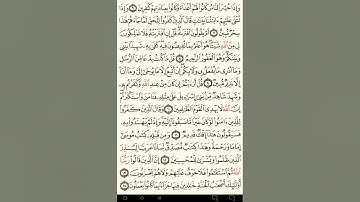 وَإِذَا حُشِرَ ٱلنَّاسُ كَانُوا۟ لَهُمْ أَعْدَآءً وَكَانُوا۟ بِعِبَادَتِهِمْ كَٰفِرِينَ ٦ وَإِذَا
تُتْلَىٰ عَلَيْهِمْ ءَايَٰتُنَا بَيِّنَٰتٍ قَالَ ٱلَّذِينَ كَفَرُوا۟ لِلْحَقِّ لَمَّا جَآءَهُمْ هَٰذَا
سِحْرٌ مُّبِينٌ ٧ أَمْ يَقُولُونَ ٱفْتَرَىٰهُ قُلْ إِنِ ٱفْتَرَيْتُهُۥ فَلَا تَمْلِكُونَ
لِى مِنَ ٱللَّهِ شَيْـًٔا هُوَ أَعْلَمُ بِمَا تُفِيضُونَ فِيهِ كَفَىٰ بِهِۦ شَهِيدًۢا بَيْنِى
وَبَيْنَكُمْ وَهُوَ ٱلْغَفُورُ ٱلرَّحِيمُ ٨ قُلْ مَا كُنتُ بِدْعًا مِّنَ ٱلرُّسُلِ
وَمَآ أَدْرِى مَا يُفْعَلُ بِى وَلَا بِكُمْ إِنْ أَتَّبِعُ إِلَّا مَا يُوحَىٰٓ إِلَىَّ وَمَآ أَنَا۠
إِلَّا نَذِيرٌ مُّبِينٌ ٩ قُلْ أَرَءَيْتُمْ إِن كَانَ مِنْ عِندِ ٱللَّهِ وَكَفَرْتُم بِهِۦ
وَشَهِدَ شَاهِدٌ مِّنۢ بَنِىٓ إِسْرَٰٓءِيلَ عَلَىٰ مِثْلِهِۦ فَـَٔامَنَ وَٱسْتَكْبَرْتُمْ
إِنَّ ٱللَّهَ لَا يَهْدِى ٱلْقَوْمَ ٱلظَّٰلِمِينَ ١٠ وَقَالَ ٱلَّذِينَ كَفَرُوا۟
لِلَّذِينَ ءَامَنُوا۟ لَوْ كَانَ خَيْرًا مَّا سَبَقُونَآ إِلَيْهِ وَإِذْ لَمْ يَهْتَدُوا۟ بِهِۦ
فَسَيَقُولُونَ هَٰذَآ إِفْكٌ قَدِيمٌ ١١ وَمِن قَبْلِهِۦ كِتَٰبُ مُوسَىٰٓ
إِمَامًا وَرَحْمَةً وَهَٰذَا كِتَٰبٌ مُّصَدِّقٌ لِّسَانًا عَرَبِيًّا لِّيُنذِرَ
ٱلَّذِينَ ظَلَمُوا۟ وَبُشْرَىٰ لِلْمُحْسِنِينَ ١٢ إِنَّ ٱلَّذِينَ قَالُوا۟ رَبُّنَا
ٱللَّهُ ثُمَّ ٱسْتَقَٰمُوا۟ فَلَا خَوْفٌ عَلَيْهِمْ وَلَا هُمْ يَحْزَنُونَ ١٣
أُو۟لَٰٓئِكَ أَصْحَٰبُ ٱلْجَنَّةِ خَٰلِدِينَ فِيهَا جَزَآءًۢ بِمَا كَانُوا۟ يَعْمَلُونَ ١٤